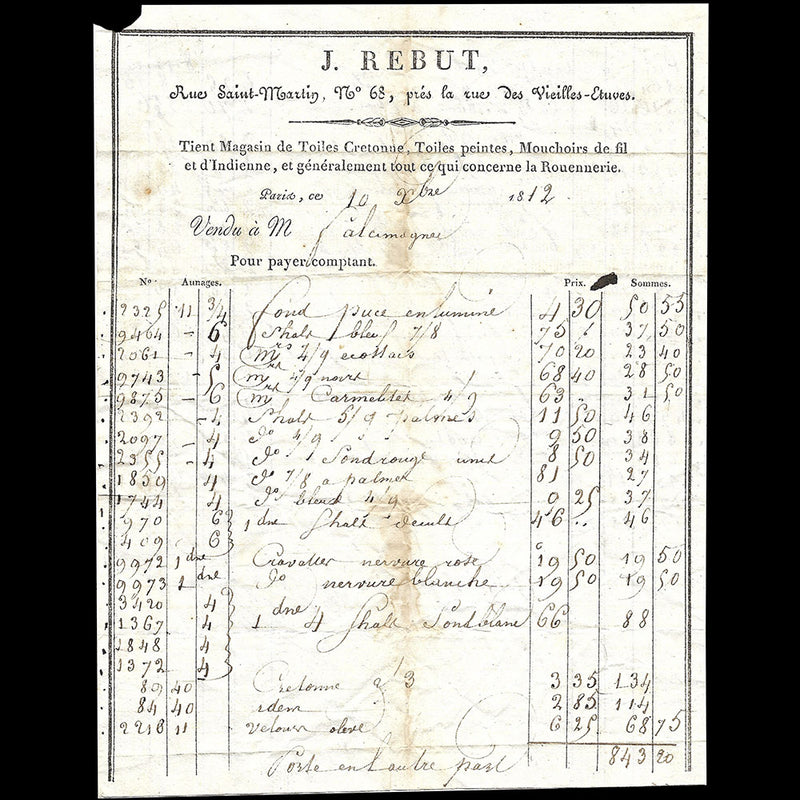 J. REBUT,
Rue Saint-Martin, Nº 68, prés la rue des Vieilles-Etuves.
Tient Magasin de Toiles Cretonne, Toiles peintes, Mouchoirs de fil
et d'Indienne, et généralement tout ce qui concerne la Rouennerie.
Paris, ce 10 Xbre 1812
Vendu à M
Pour payer comptant.
Nº Aunages. Prix. Sommes.
2325 11 3/4 fond puce enluminé 4 30 50 55
9464 - 6 Shals bleu 7/8 75 37 50
2061 - 4 Mrs 4/9 ecossais 70 20 23 40
9743 - 5 Mrs 4/9 noirs 68 40 28 50
9875 - 6 Mrs Carmelites 4/9 63 31 50
2392 - 4 Shals 5/9 palmes 11 50 46
2097 4 do 4/9 9 50 38
2355 - 4 do fond rouge unis 8 50 34
1859 4 do 7/8 a palmes 81 27
1744 4 do bleus 4/9 9 25 37
970 6 1 dne Shals 46 46
409 6
9972 1 dne Cravattes nervure rose 19 50 19 50
9973 1 dne do nervure blanche 19 50 19 50
3420 4
1367 4 1 dne 4 Shals fond blanc 66 88
1848 4
1372 4
89 40 Cretonne 2/3 3 35 134
84 40 idem 2 85 114
2218 11 velours olive 6 25 68 75
Porté en l'autre part 843 20